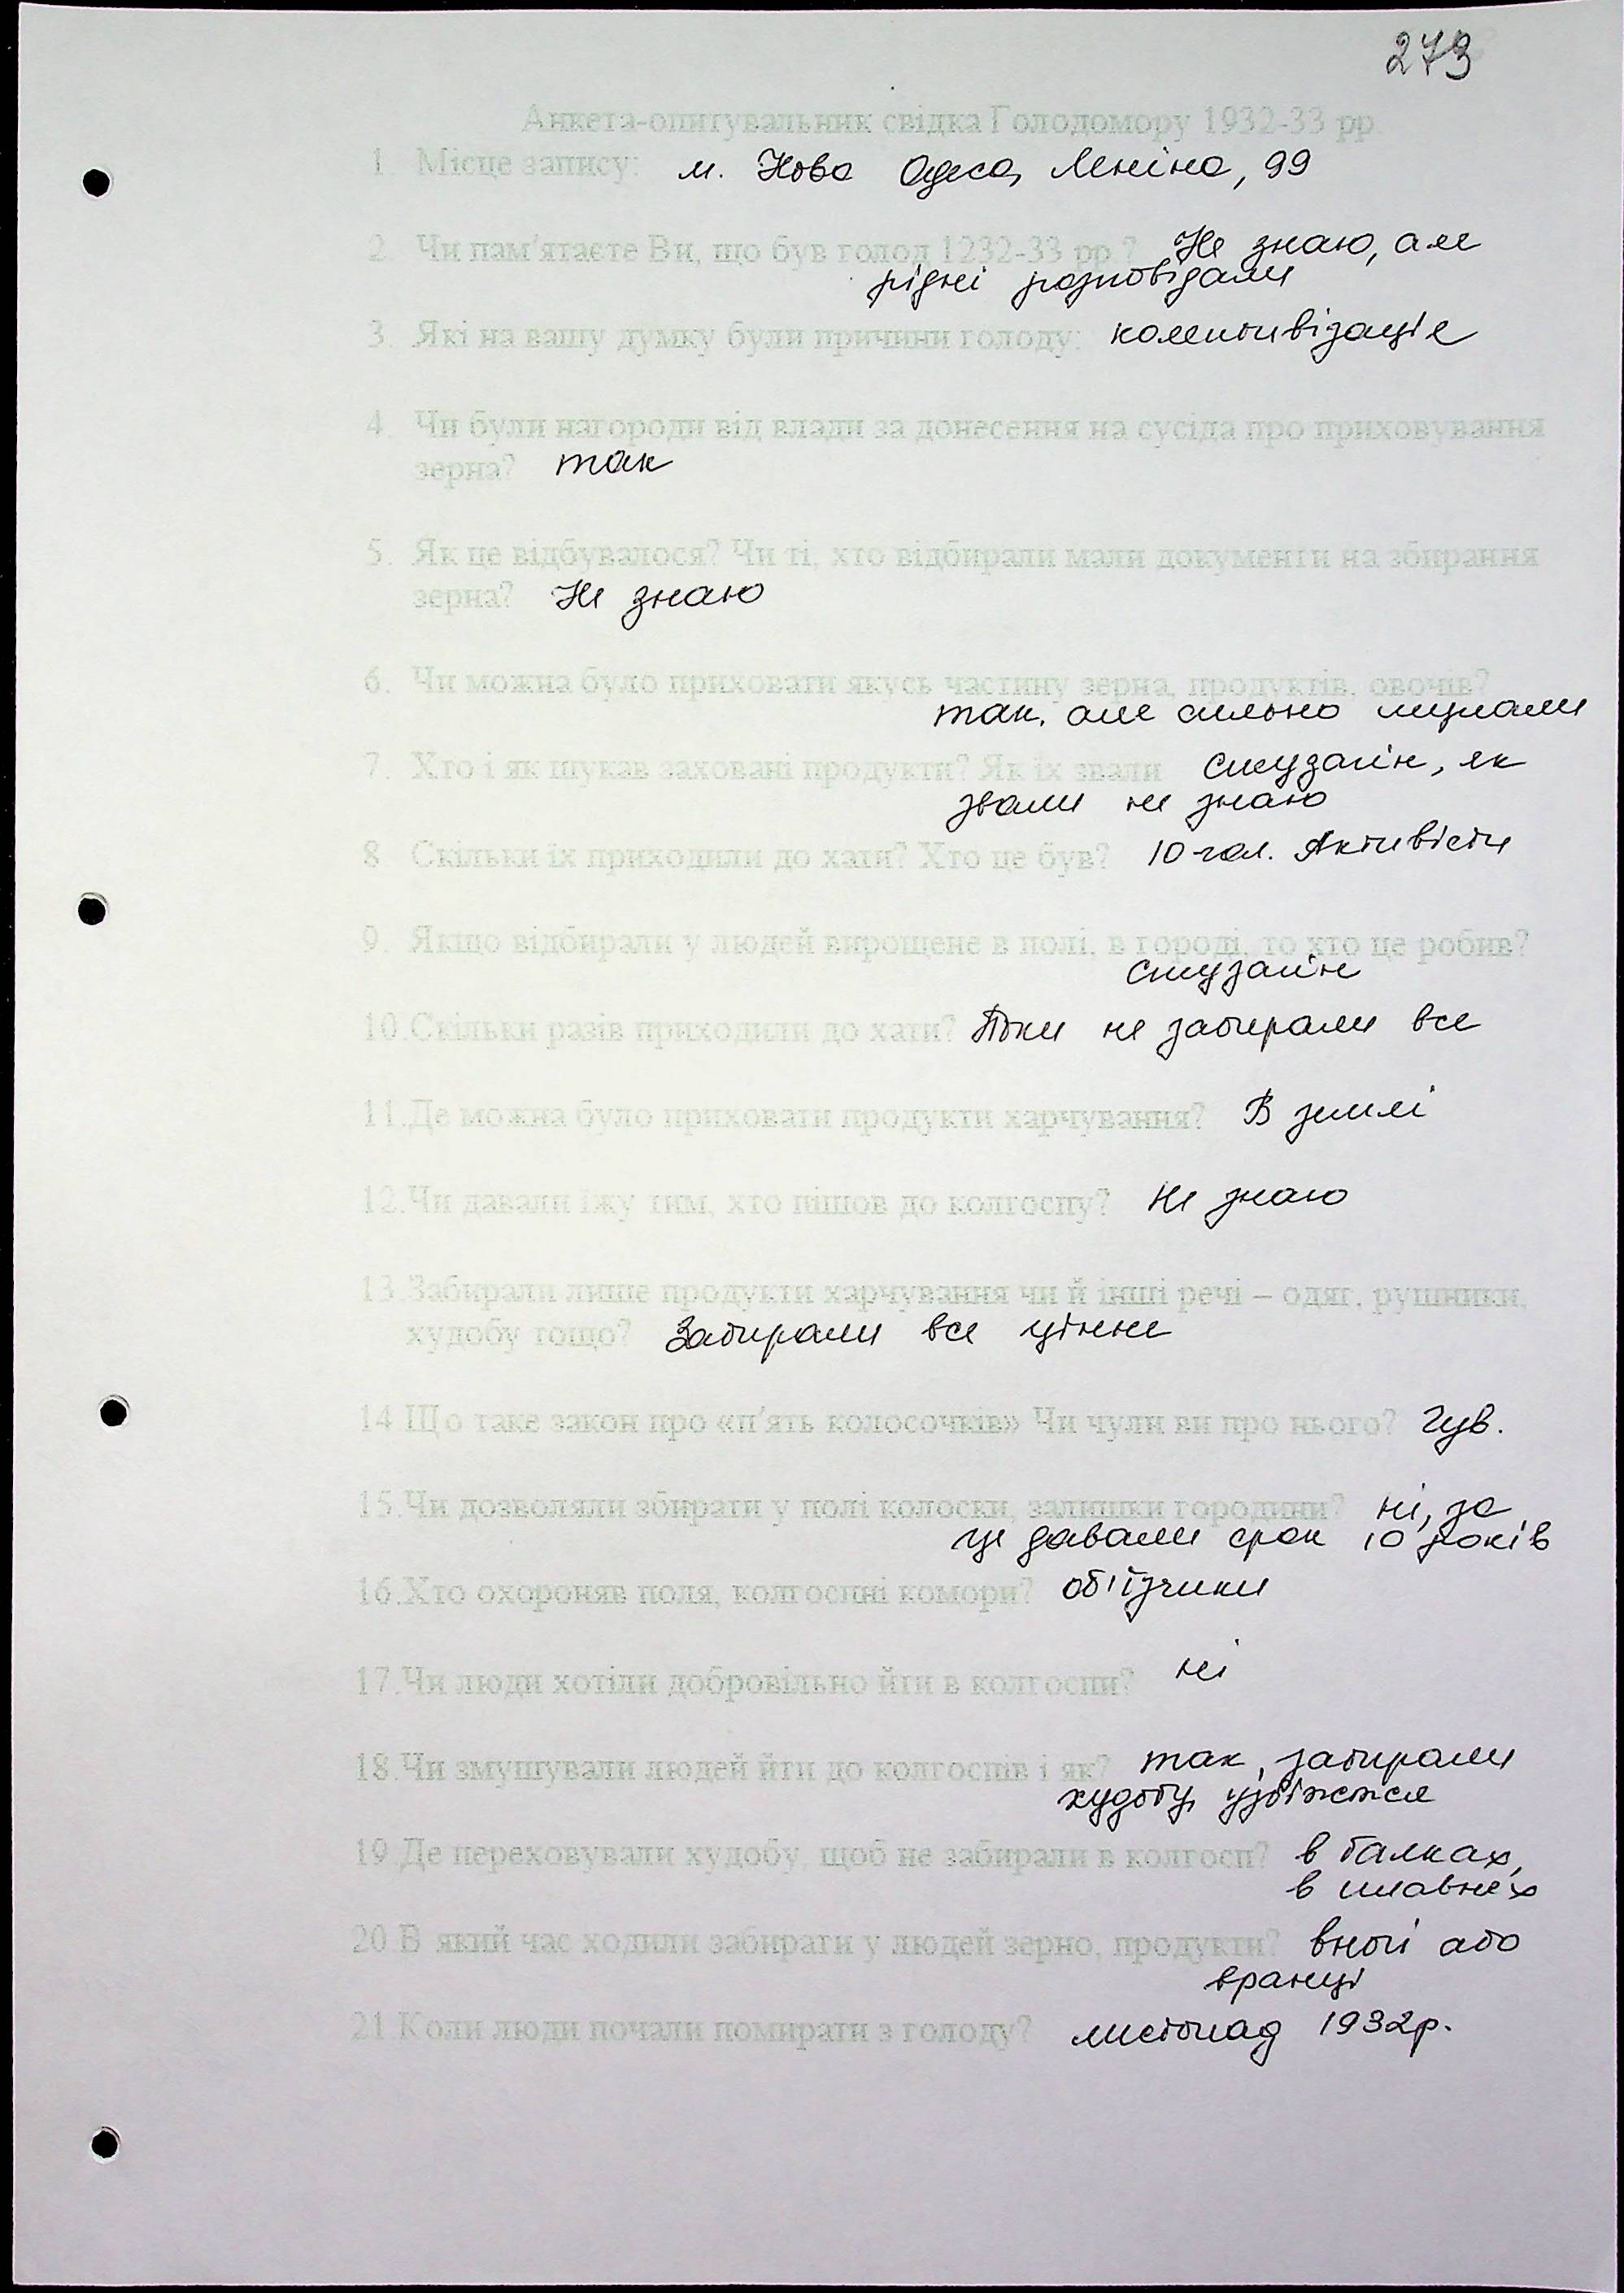 273
Анкета-опитувальник свідка Голодомору 1932-33 рр.
1. Місце запису: м. Нова Одеса, Леніна, 99
2. Чи пам'ятаєте Ви, що був голод 1232-33 рр.? Не знаю, але
рідні розповідали
3. Які на вашу думку були причини голоду: колективізація
4. Чи були нагороди від влади за донесення на сусіда про приховування
зерна? так
5. Як це відбувалося? Чи ті, хто відбирали мали документи на збирання
зерна? Не знаю
6. Чи можна було приховати якусь частину зерна, продуктів, овочів?
так, але сильно шукали
7. Хто і як шукав заховані продукти? Як їх звали як
звали не знаю
8. Скільки їх приходили до хати? Хто це був? 10 чол. Активісти
9. Якщо відбирали у людей вирощене в полі, в городі, то хто це робив?
10. Скільки разів приходили до хати? Поки не забирали все
11. Де можна було приховати продукти харчування? В землі
12. Чи давали їжу тим, хто пішов до колгоспу? Не знаю
13. Забирали лише продукти харчування чи й інші речі – одяг, рушники,
худобу тощо? Забирали все цінне
14. Що таке закон про «п'ять колосочків» Чи чули ви про нього? Чув.
15. Чи дозволяли збирати у полі колоски, залишки городини? ні, за
це давали срок 10 років
16. Хто охороняв поля, колгоспні комори? об'їзчики
17. Чи люди хотіли добровільно йти в колгоспи? ні
18. Чи змушували людей йти до колгоспів і як? так, забирали
худобу,
19. Де переховували худобу, щоб не забирали в колгосп? в балках,
в плавнях
20. В який час ходили забирати у людей зерно, продукти? вночі або
вранці
21. Коли люди почали помирати з голоду? листопад 1932р.